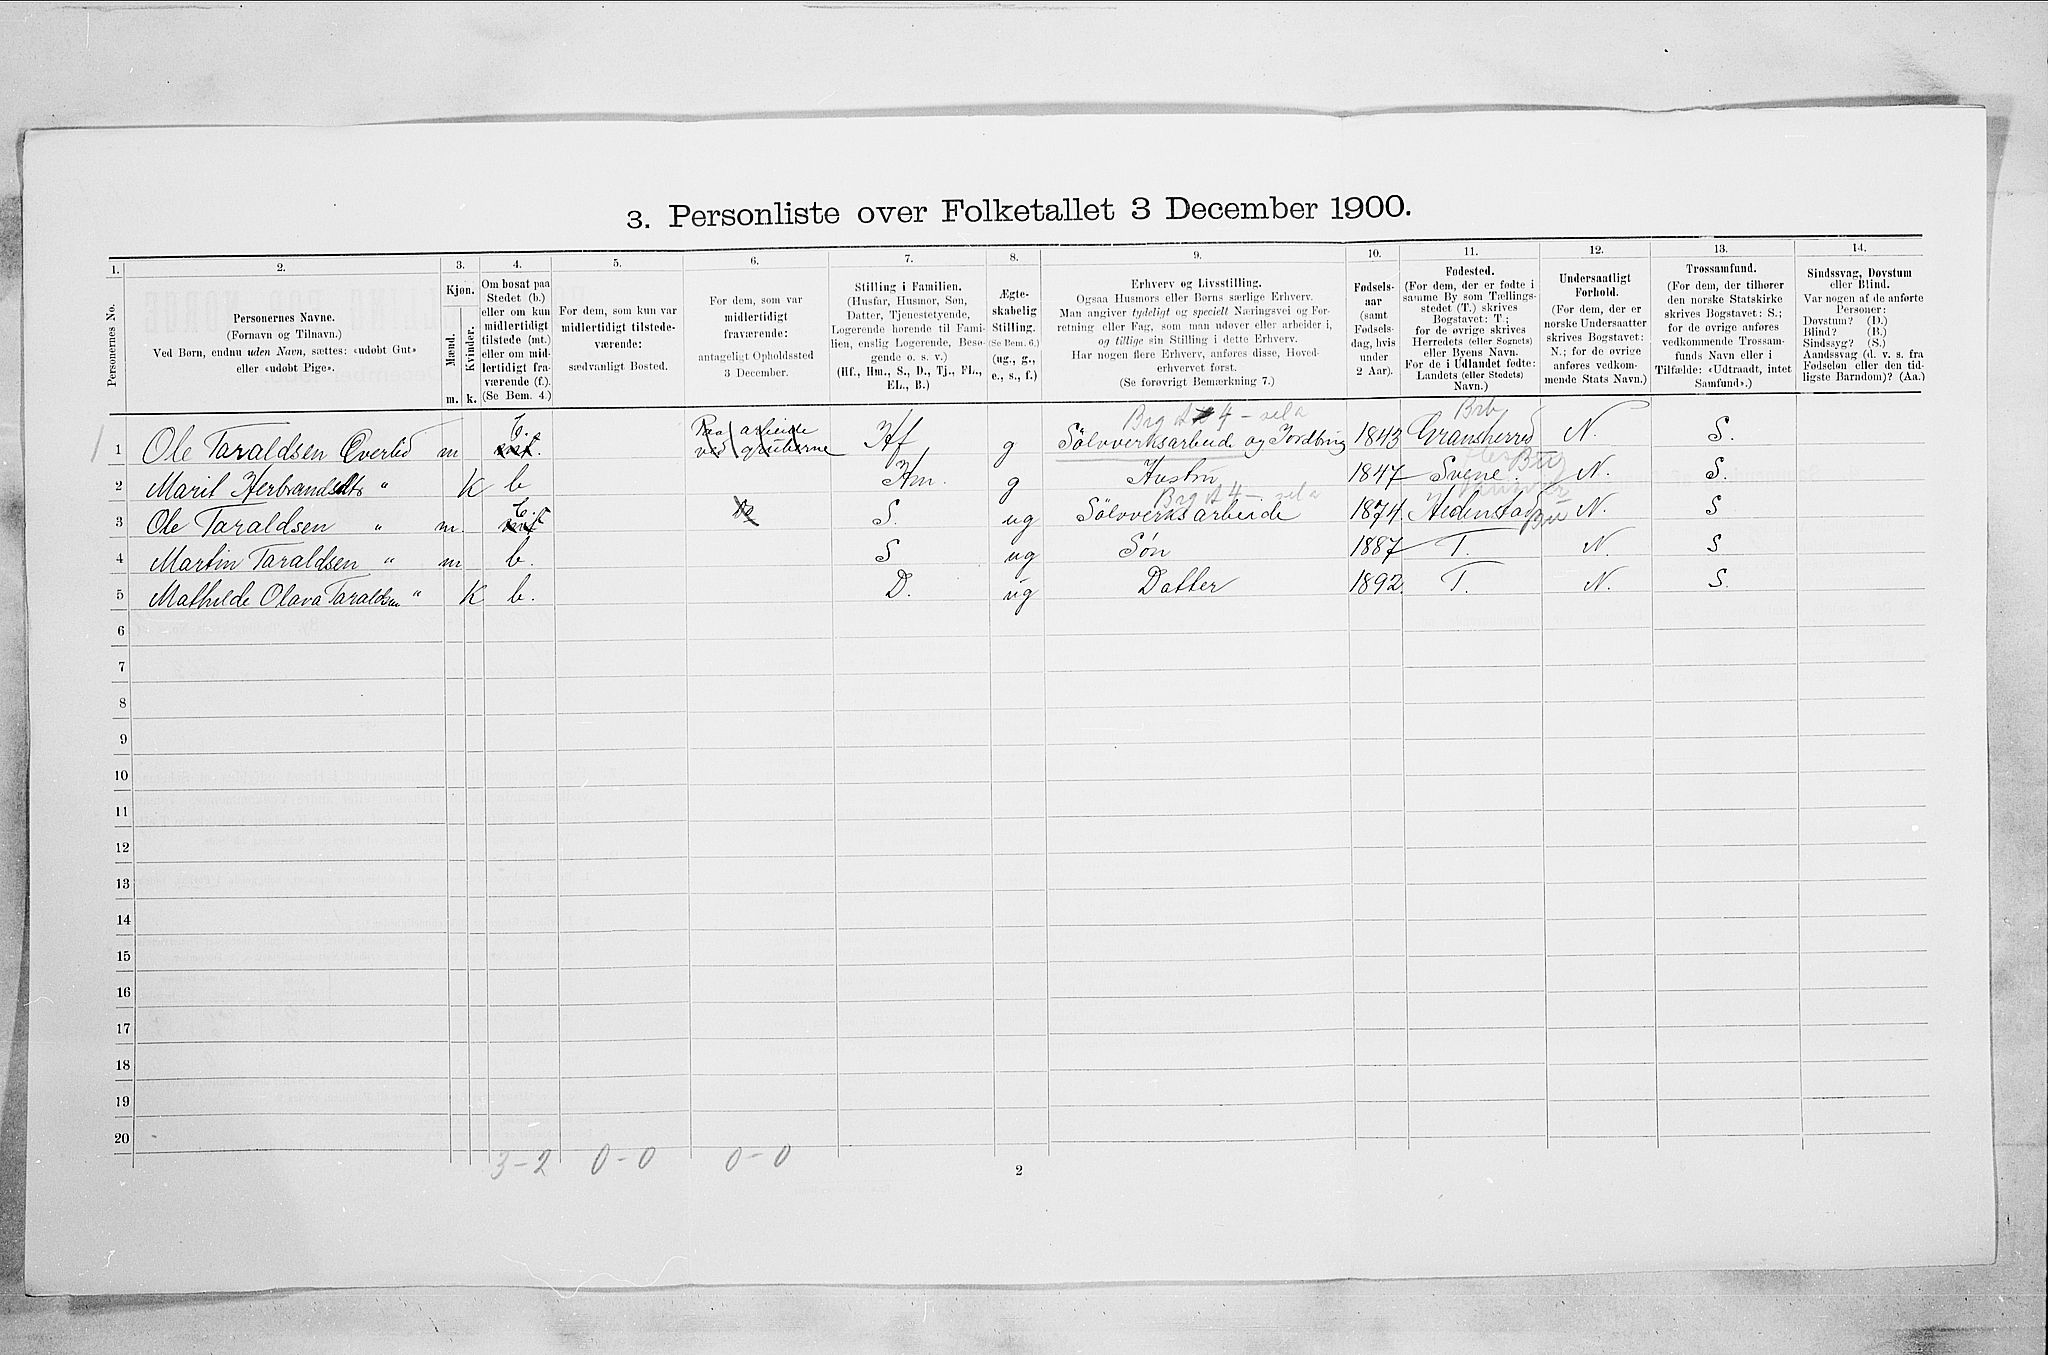 3. Personliste over Folketallet 3 December 1900.
1. 2. 3. 4. 5. 6. 7. 8. 9. 10. 11. 12. 13. 14.
Personernes No.
Personernes Navne.
(Fornavn og Tilnavn.)
Ved Børn, endnu uden Navn, sættes: «udøbt Gut»
eller «udøbt Pige».
Kjøn.
Mænd. Kvinder.
m. k.
Om bosat paa
Stedet (b.)
eller om kun
midlertidigt
tilstede (mt.)
eller om mid-
lertidigt fra-
værende (f.).
(Se Bem. 4.)
For dem, som kun var
midlertidigt tilstede-
værende:
sædvanligt Bosted.
For dem, som var
midlertidigt
fraværende:
antageligt Opholdssted
3 December.
Stilling i Familien.
(Husfar, Husmor, Søn,
Datter, Tjenestetyende,
Logerende hørende til Fami-
lien, enslig Logerende, Besø-
gende o. s. v.)
(Hf., Hm., S., D., Tj., FL.,
EL., B.)
Ægte-
skabelig
Stilling.
(Se Bem. 6.)
(ug., g.,
e., s., f.)
Erhverv og Livsstilling.
Ogsaa Husmors eller Børns særlige Erhverv.
Man angiver tydeligt og specielt Næringsvei og For-
retning eller Fag, som man udøver eller arbeider i,
og tillige sin Stilling i dette Erhverv.
Har nogen flere Erhverv, anføres disse, Hoved-
erhvervet først.
(Se forøvrigt Bemærkning 7.)
Fødsels-
aar
(samt
Fødsels-
dag, hvis
under
2 Aar).
Fødested.
(For dem, der er fødte i
samme By som Tællings-
stedet (T.) skrives
Bogstavet: T;
for de øvrige skrives
Herredets (eller Sognets)
eller Byens Navn.
For de i Udlandet fødte:
Landets (eller Stedets)
Navn.)
Undersaatligt
Forhold.
(For dem, der er
norske Undersaatter
skrives Bogstavet:
N.; for de øvrige
anføres vedkom-
mende Stats Navn.)
Trossamfund.
(For dem, der tilhører
den norske Statskirke
skrives Bogstavet: S.;
for de øvrige anføres
vedkommende Trossam-
funds Navn eller i
Tilfælde: «Udtraadt, intet
Samfund».)
Sindssvag, Døvstum
eller Blind.
Var nogen af de anførte
Personer:
Døvstum? (D.)
Blind? (B.)
Sindssyg? (S.)
Aandssvag (d. v. s. fra
Fødselen eller den tid-
ligste Barndom)? (Aa.)
1 Ole Taraldsen Överlid m b. mt. Paa arbeide ved gruberne Hf g Sölvverksarbeide og Jordbrug 1843 Gransherred N. S.
2 Marit Herbrandsdtr " K b Hm. g Hustru 1847 Svene. N. S.
3 Ole Taraldsen " m. b. mt S. ug Sölvverksarbeide 1874 Hedenstad N. S
4 Martin Taraldsen " m b. S ug Søn 1887 T. N. S
5 Mathilde Olava Taraldsen " K b. D. ug Datter 1892. T. N. S.
6
7
8
9
10
11
12
13
14
15
16
17
18
19
20
3-2 0-0 0-0
2